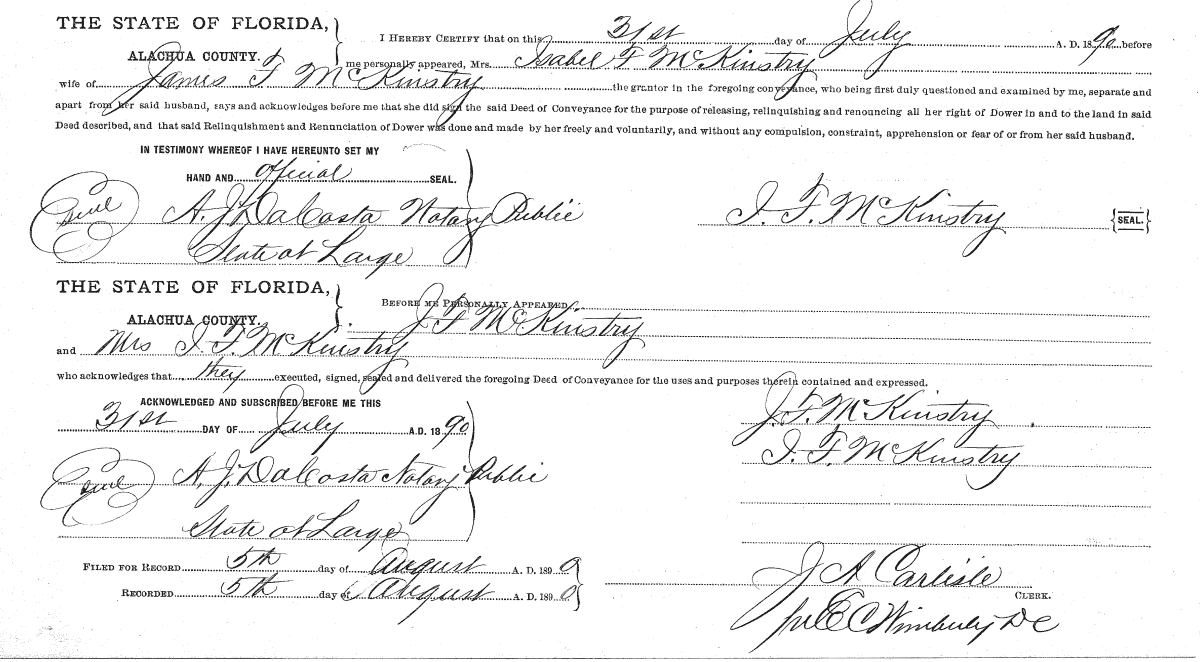 THE STATE OF FLORIDA,
ALACHUA COUNTY.
I HEREBY CERTIFY that on this 31st day of July A. D. 1890 before
me personally appeared, Mrs. Isabel F McKinstry
wife of James F McKinstry the grantor in the foregoing conveyance, who being first duly questioned and examined by me, separate and
apart from her said husband, says and acknowledges before me that she did sign the said Deed of Conveyance for the purpose of releasing, relinquishing and renouncing all her right of Dower in and to the land in said
Deed described, and that said Relinquishment and Renunciation of Dower was done and made by her freely and voluntarily, and without any compulsion, constraint, apprehension or fear of or from her said husband.
IN TESTIMONY WHEREOF I HAVE HEREUNTO SET MY
HAND AND official SEAL.
Seal A. J. DaCosta Notary Public
State at Large
I. F. McKinstry {SEAL.}
THE STATE OF FLORIDA,
ALACHUA COUNTY.
BEFORE ME PERSONALLY APPEARED
J F McKinstry
and Mrs I. F. McKinstry
who acknowledges that they executed, signed, sealed and delivered the foregoing Deed of Conveyance for the uses and purposes therein contained and expressed.
ACKNOWLEDGED AND SUBSCRIBED BEFORE ME THIS
31st DAY OF July A.D. 1890
J. F. McKinstry
I. F. McKinstry
Seal A. J. DaCosta Notary Public
State at Large
FILED FOR RECORD 5th day of August A. D. 1890
RECORDED 5th day of August A. D. 1890
J A Carlisle
CLERK.
per E C Wimberly DC